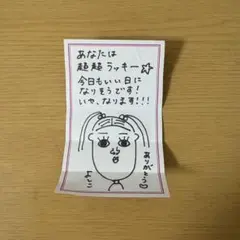 あなたは
超超ラッキー☆
今日もいい日に
なりそうです！
いや、なります！！！
ありがとう
よしこ